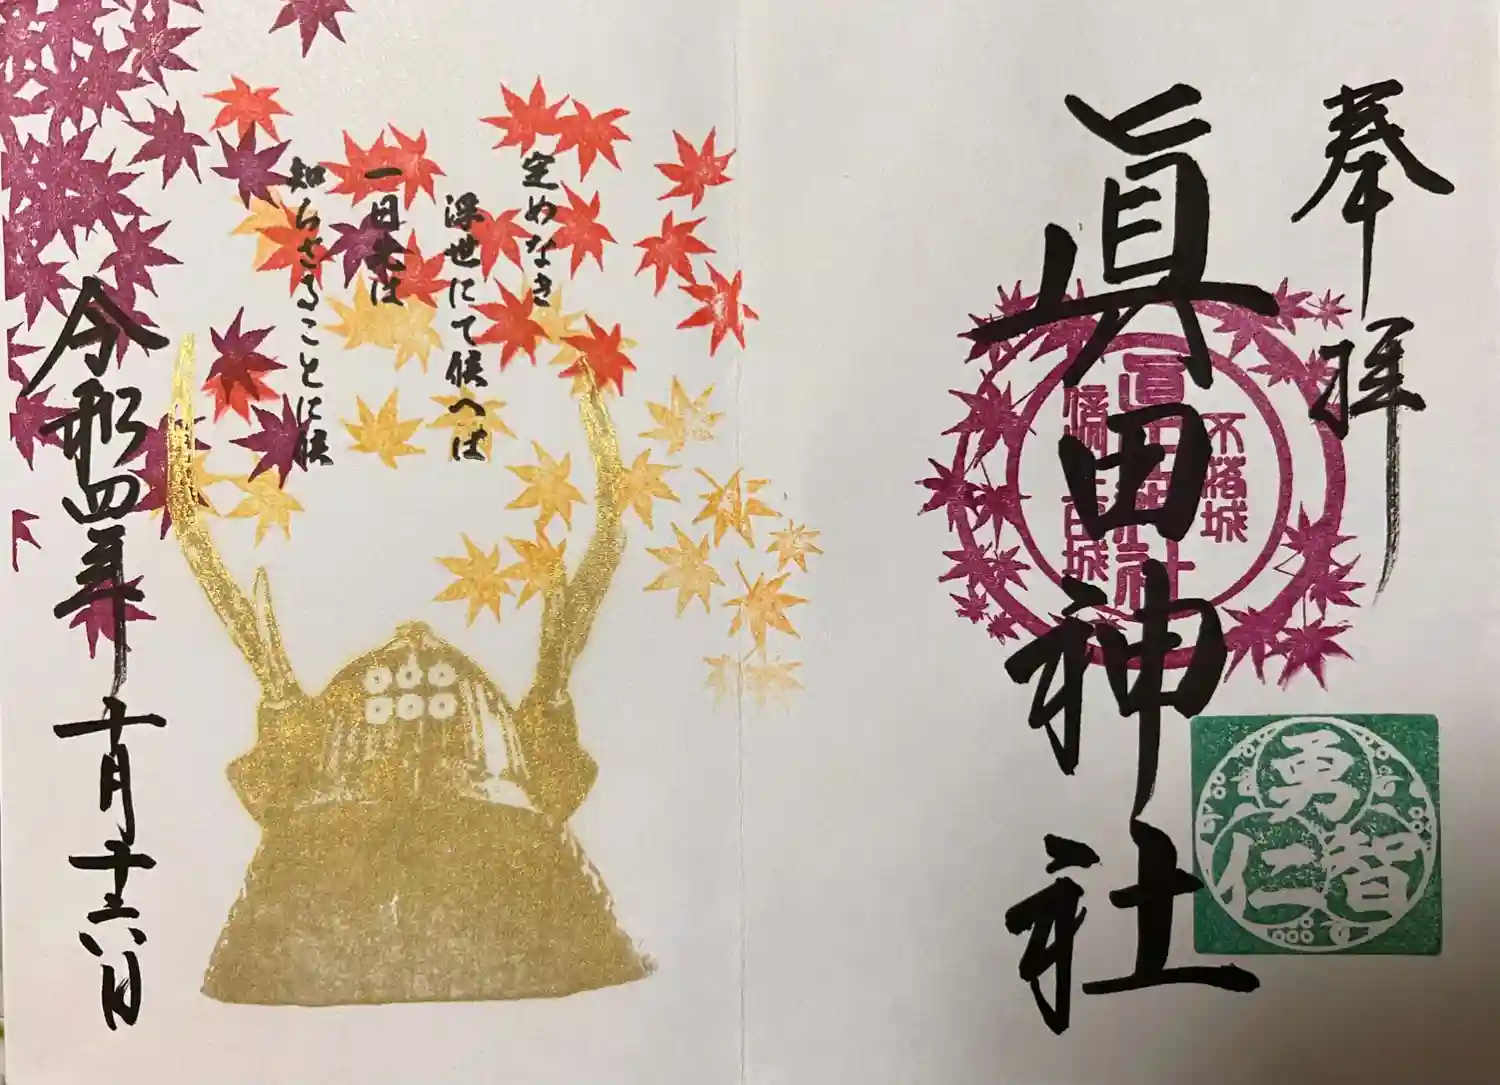 奉拝
不落城
眞田神社
眞田神社
勇
智
仁
定めなき
浮世にて候へは
一日先は
知らざることに候
令和四年十月十六日